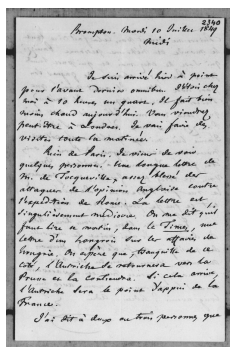 2340
Brompton. Mardi 10 Juillet 1849
midi
Je suis arrivé hier à peine
pour l'avant dernier omnibus. J'étois chez
moi à 10 heures un quart. Il fait bien
moins chaud aujourd'hui. Vous viendrez
peut-être à Londres. Je vais faire des
visites toute la matinée.
Rien de Paris. Je viens de voir
quelques personnes. Une longue lettre de
M. de Tocqueville, assez blessé des
attaques de l'opinion Anglaise contre
l'expédition de Rome. La lettre est
singulièrement médiocre. On me dit qu'il
faut lire ce matin, dans le Times, une
lettre d'un hongrois sur les affaires de
Hongrie. On espère que, tranquille de ce
côté, l'Autriche se retournera vers la
Prusse et la contiendra. Si cela arrive,
l'Autriche sera le point d'appui de la
France.
J'ai dit à deux ou trois personnes que